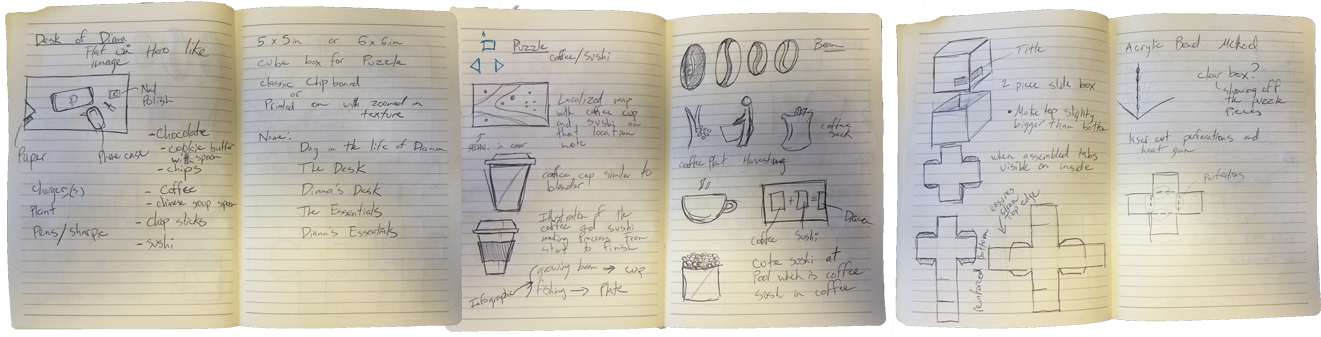 Desk of Diana
Flat w/ Hero like
image
Nail
Polish
Paper
Phone case
- Chocolate
- cookie butter
with spoon
- chips
Charger(s)
- Coffee
- chinese soup spoon
Plant
- Chop sticks
Pens/sharpe
- sushi
5 x 5 in or 6 x 6 in
cube box for Puzzle
classic Chipboard
or
Printed on with zoomed in
texture
Name:
Day in the life of Diana
The Desk
Diana's Desk
The Essentials
Diana's Essentials
Puzzle
coffee/sushi
Localized map
with coffee cup
and sushi on
that location
note
coffee cup similar to
blender
Illustration of the
coffee and sushi
making process from
start to finish
Infographic
growing bean → cup
fishing → Plate
Bean
coffee
sack
coffee Plant Harvesting
Diana
coffee Sushi
Cute sushi at
Pool which is coffee
sushi in coffee
Title
2 piece slide box
• Make top slightly
bigger than bottom
when assembled tabs
visible on inside
ensures
clean
top edge
Reinforced bottom
Acrylic Bend Method
clear box?
showing off
the puzzle
pieces
laser cut perforations and
heat gun
Perforations